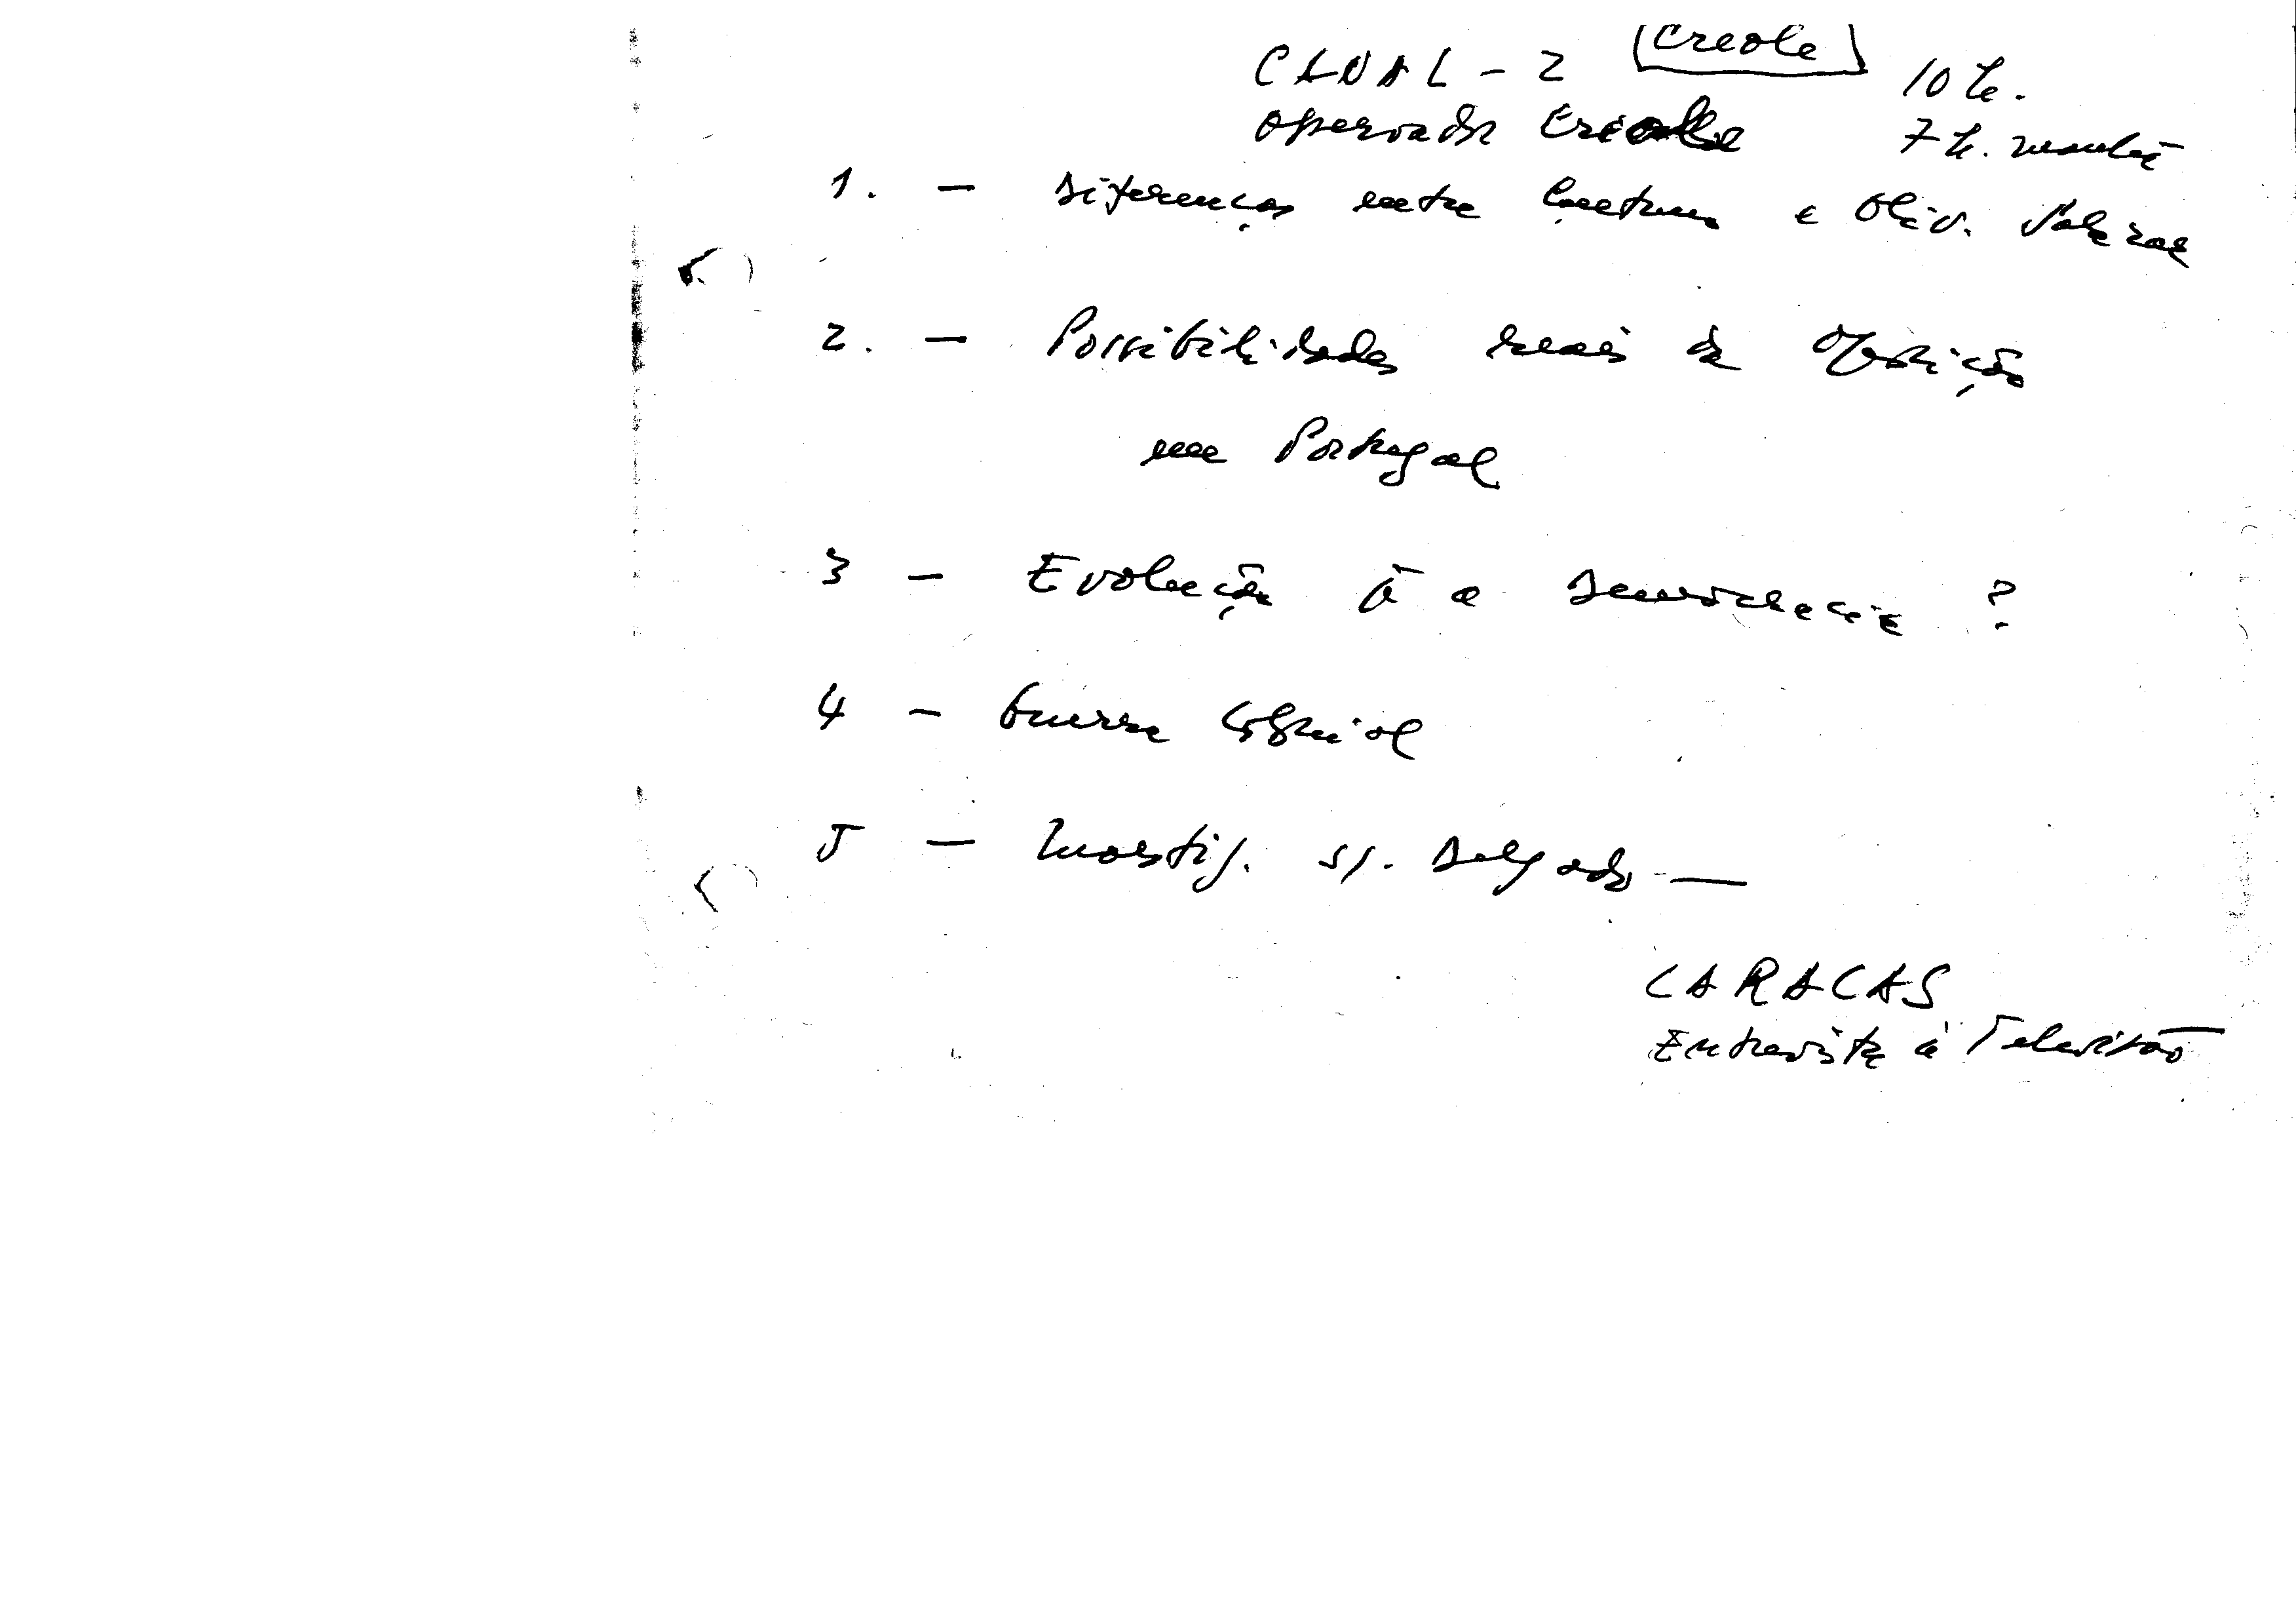 CANAL - 2 [Creole] 10 h.
Operador Creole 7 h. manhã
1. - Diferenças entre Caetano e Oliv. Salazar
2. - Possibilidades reais da Oposição
em Portugal
3 - Evolução p.ª a Democracia ?
4 - Guerra Colonial
5 - Investig. s/. Delgado —
CARACAS
Entrevista à Televisão